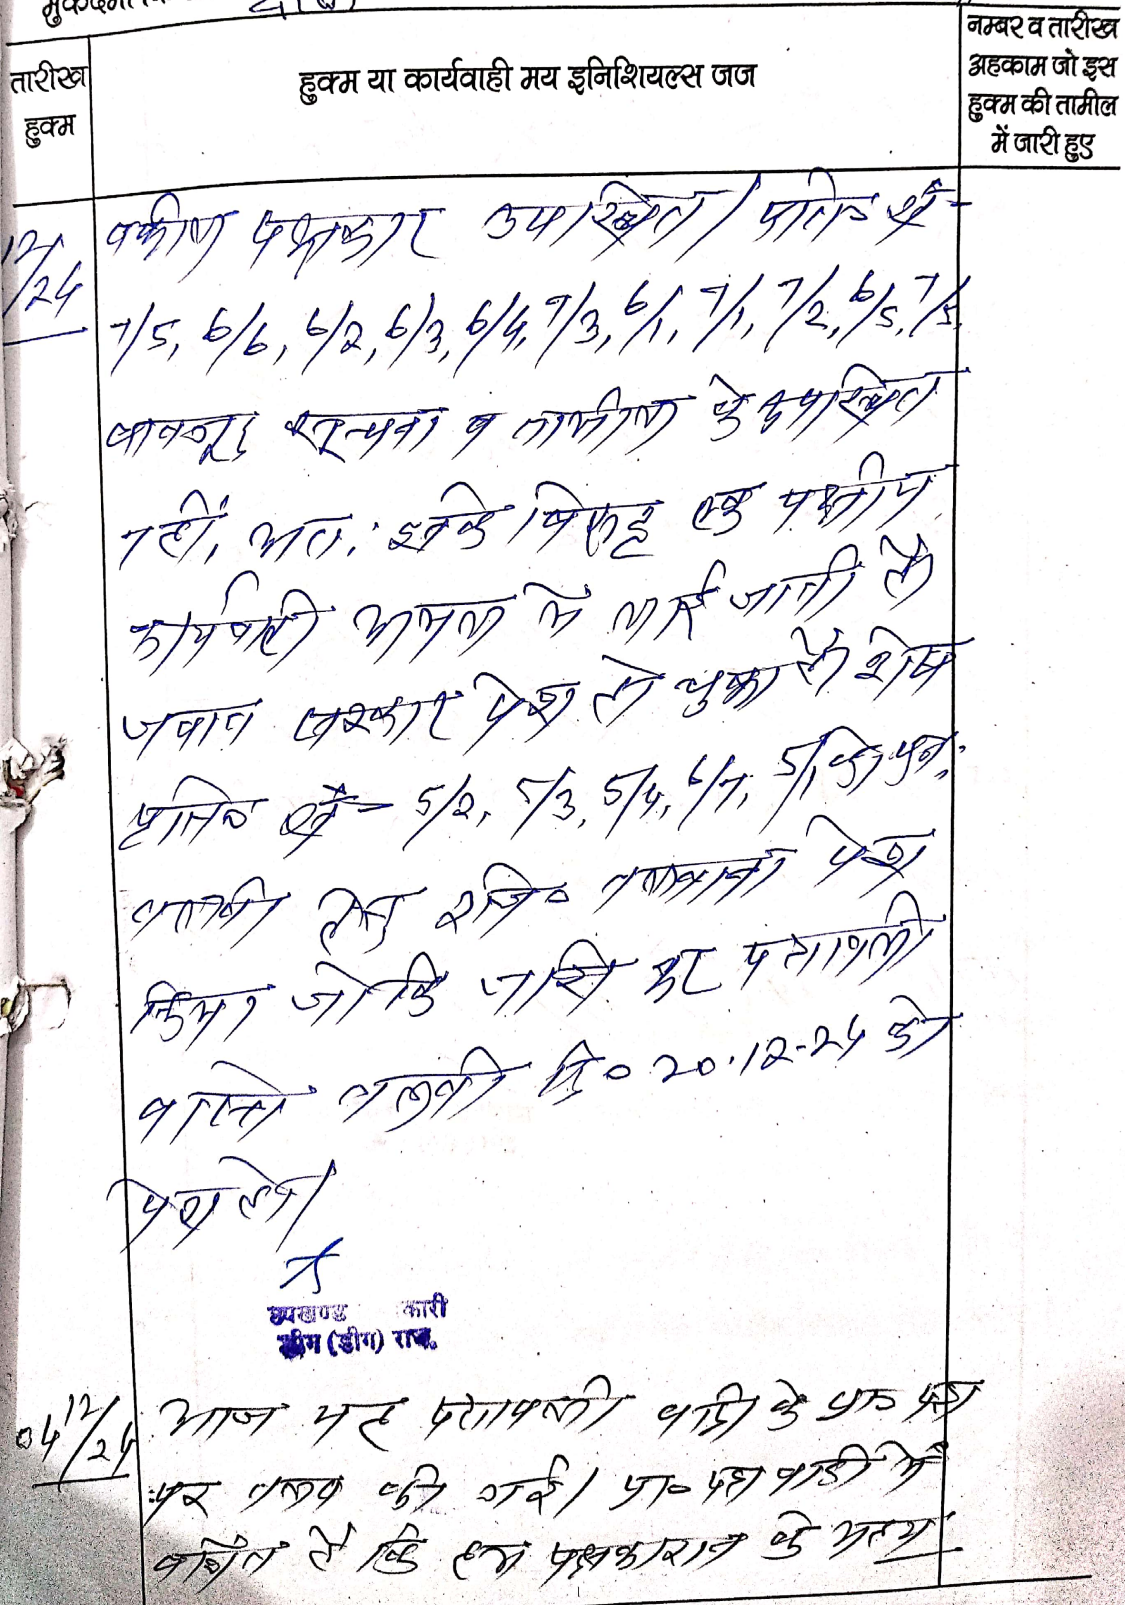 तारीख हुक्म
हुक्म या कार्यवाही मय इनिशियल्स जज
नम्बर व तारीख
अहकाम जो इस
हुक्म की तामील
में जारी हुए
12/24
वकील पक्षकार उपस्थित। प्रति०सं-
7/5, 6/6, 6/2, 6/3, 6/4, 7/3, 6/1, 7/1, 7/2, 6/5, 7/5,
बावजूद सूचना व तामील के उपस्थित
नहीं, अतः इनके विरूद्ध एक पक्षीय
कार्यवाही अमल में लाई जाती है
जवाब सरकार पेश हो चुका है शेष
प्रति० सं- 5/2, 5/3, 5/4, 6/7, 5/1 की पुनः
तलबी हेतु रजि० तलवाना पेश
किया जो कि जारी कर पत्रावली
वास्ते तलबी दि० 20.12.24 को
पेश हो।
उपखण्ड कारी
डीग (डीग) राज.
04/12/24
आज यह पत्रावली वादी के प्रा० पत्र
पर तलब की गई। प्रा० पत्र वादी में
वर्णित है कि हम पक्षकारान के मध्य